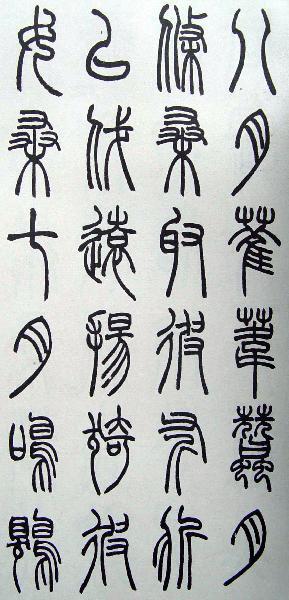 八月萑葦蠶月
條桑取彼斧斨
以伐遠揚猗彼
女桑七月鳴鵙